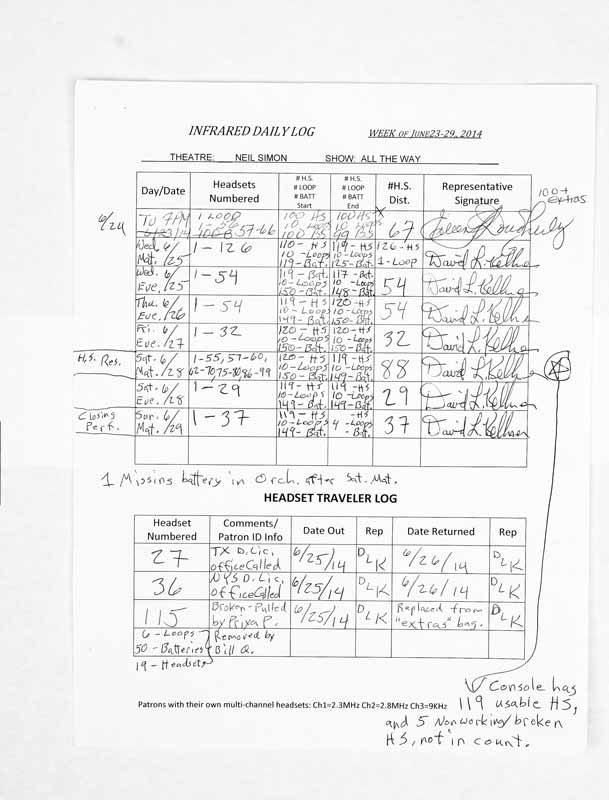 INFRARED DAILY LOG WEEK OF JUNE23-29, 2014
THEATRE: NEIL SIMON SHOW: ALL THE WAY
Day/Date Headsets Numbered # H.S. # LOOP # BATT Start # H.S. # LOOP # BATT End #H.S. Dist. Representative Signature
100+ extras
6/24 TU 7PM 1 LOOP 57-66 100 HS 10 Loops 100 BS 100 HS 10 Loops 99 BS X 67
Wed. 6/25 Mat. 1-126 110-HS 10-Loops 119-Bat. 119-HS 10-Loops 125-Bat. 126-HS 1-Loop David L. Kellner
Wed. 6/25 Eve. 1-54 119-Bat. 10-Loops 150-Bat. 117-Bat. 10-Loops 148-Bat. 54 David L. Kellner
Thu. 6/26 Eve. 1-54 119-HS 10-Loops 149-Bat. 120-HS 10-Loops 150-Bat. 54 David L. Kellner
Fri. 6/27 Eve. 1-32 120-HS 10-Loops 150-Bat. 120-HS 10-Loops 150-Bat. 32 David L. Kellner
H.S. Res. Sat. 6/28 Mat. 1-55, 57-60, 62-70, 75-80, 86-99 120-HS 10-Loops 150-Bat. 119-HS 10-Loops 149-Bat. 88 David L. Kellner
Sat. 6/28 Eve. 1-29 119-HS 10-Loops 149-Bat. 119-HS 10-Loops 149-Bat. 29 David L. Kellner
Closing Perf. Sun. 6/29 Mat. 1-37 119-HS 10-Loops 149-Bat. -HS 4-Loops -Bat. 37 David L. Kellner
1 Missing battery in Orch. after Sat. Mat.
HEADSET TRAVELER LOG
Headset Numbered Comments/ Patron ID Info Date Out Rep Date Returned Rep
27 TX D. Lic. office Called 6/25/14 DLK 6/26/14 DLK
36 NYS D. Lic. office Called 6/25/14 DLK 6/26/14 DLK
115 Broken-Pulled by Prixa P. 6/25/14 DLK Replaced from "extras" bag. DLK
6-Loops
50-Batteries
19-Headsets
Removed by
Bill Q.
Patrons with their own multi-channel headsets: Ch1=2.3MHz Ch2=2.8MHz Ch3=9KHz
Console has
119 usable HS,
and 5 Nonworking/broken
HS, not in count.